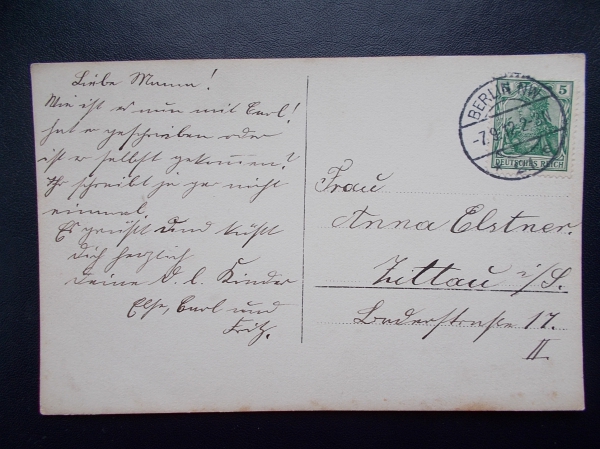 Liebe Mama!
Wie ist es nun mit Carl?
hat er geschrieben oder
ist er selbst gekommen?
Ihr schreibt ja gar nicht
einmal.
Es grüßt und küßt
Dich herzlich
Deine d. l. Kinder
Else, Carl und
Fritz.
BERLIN NW
-7.9.15.2-
5
DEUTSCHES REICH
Frau
Anna Elstner.
Zittau i/S.
Baderstraße 17.
II